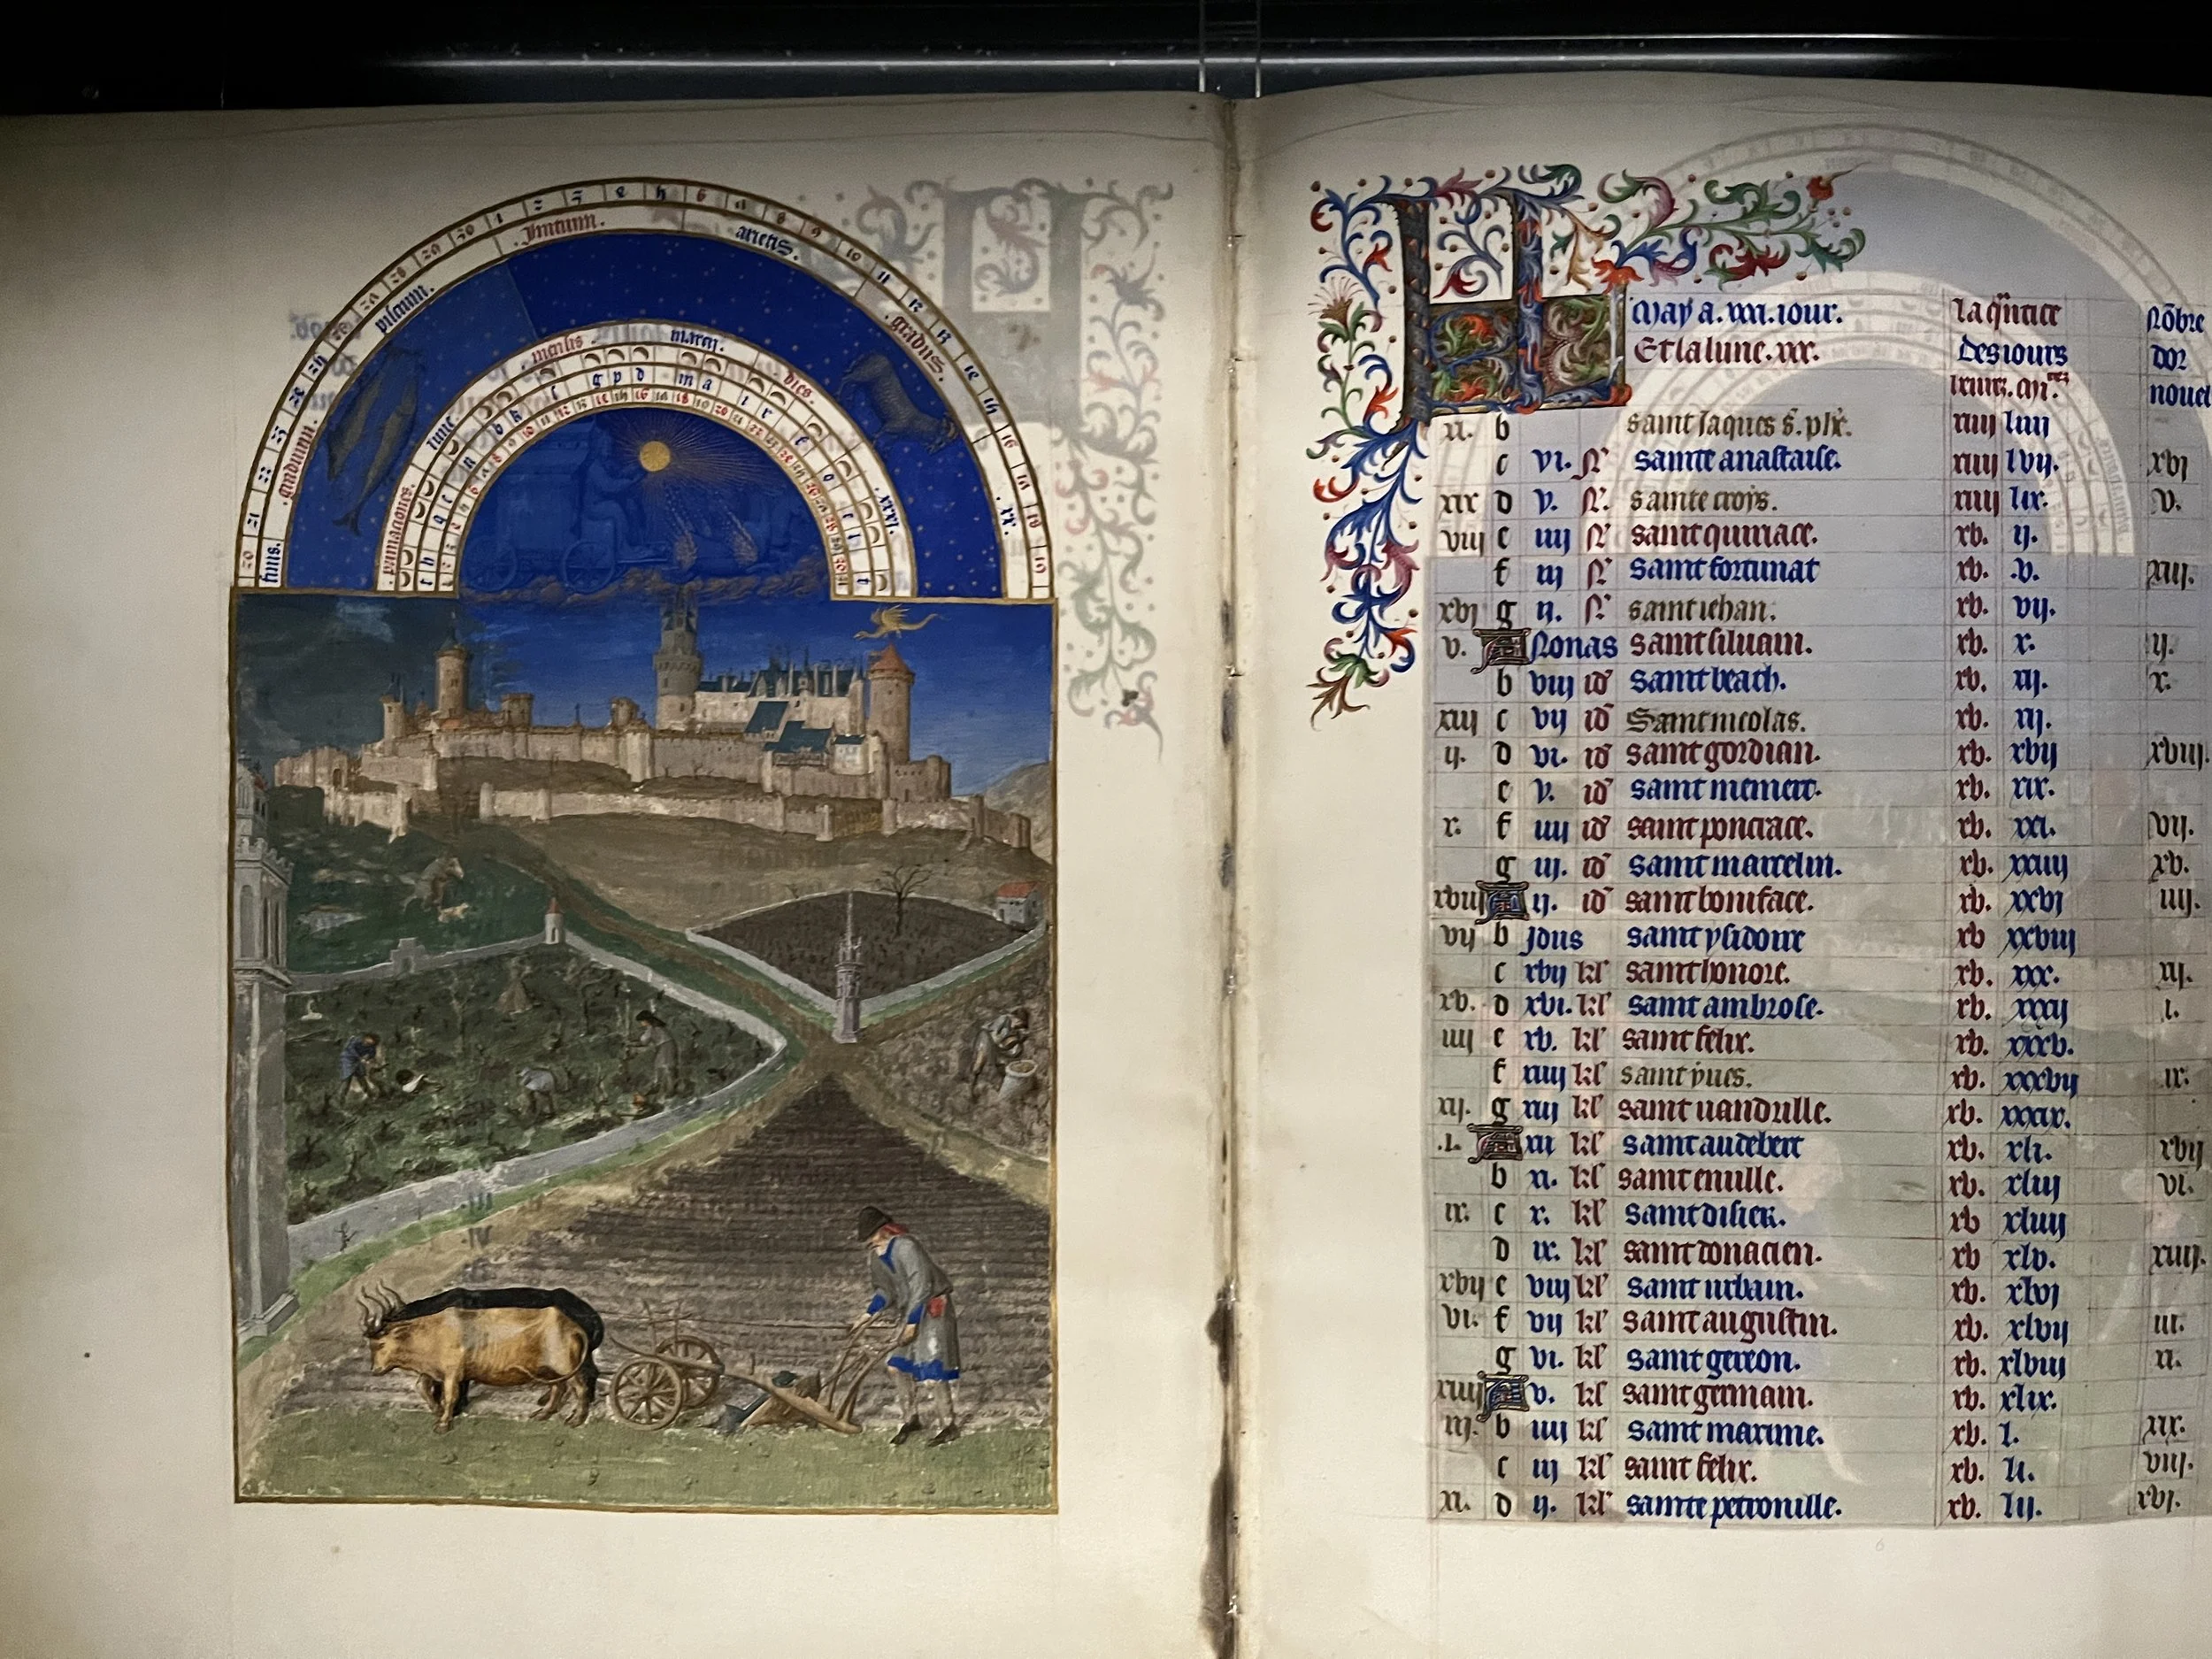 Initium. arietis. gradus. xx
finis. graduum. piscium.
primaciones. lune mensis marcij. dies. xxxi.
May a. xxxi. iour.
Et la lune. xxx.
la q̃titee
des iours
Nõbre
dor
nouel
xi. b saint Jaques s. phẽ. xiiij liiij
c vi. N̄ sainte anastaise. xiiij lvij. xvj
xix d v. N̄. sainte croys. xiiij lix. v.
viij e iiij N̄ saint quiriace. xv. ij.
f iij N̄ saint fortunat xv. .v. xiij.
xvj g ij. N̄ saint iehan. xv. vij.
v. A Nonas saint siluain. xv. x. ij.
b viij id̄ saint beath. xv. xij. x.
xiij c vij id̄ Saint nicolas. xv. xij.
ij. d vi. id̄ saint gordian. xv. xvij xviij.
e v. id̄ saint memert. xv. xix.
x. f iiij id̄ saint ponciace. xv. xxi. vij.
g iij. id̄ saint marcelin. xv. xxiiij xv.
xviij A ij. id̄ saint boniface. xv. xxvj iiij.
vij b Jdus saint ysidoire xv xxviij
c xvij kl̄ saint honore. xv. xxx. xij.
xv. d xvi. kl̄ saint ambrose. xv. xxxij i.
iiij e xv. kl̄ saint felix. xv. xxxv.
f xiiij kl̄ saint yues. xv. xxxvij ix.
xij. g xiij kl̄ saint uandrille. xv. xxxix.
.i. A xii kl̄ saint audebert xv. xli. xvij
b xi. kl̄ saint emille. xv. xliij vi.
ix. c x. kl̄ saint disier. xv xliiij
d ix. kl̄ saint donacien. xv xlv. xiiij.
xvij e viij kl̄ saint urbain. xv. xlvj
vi. f vij kl̄ saint augustin. xv. xlvij iij.
g vi. kl̄ saint gereon. xv. xlviij xi.
xiiij A v. kl̄ saint germain. xv. xlix.
iij. b iiij kl̄ saint maxime. xv. l. xix.
c iij kl̄ saint felix. xv. li. viij.
xi. d ij. kl̄ sainte petronille. xv. lij. xvj.